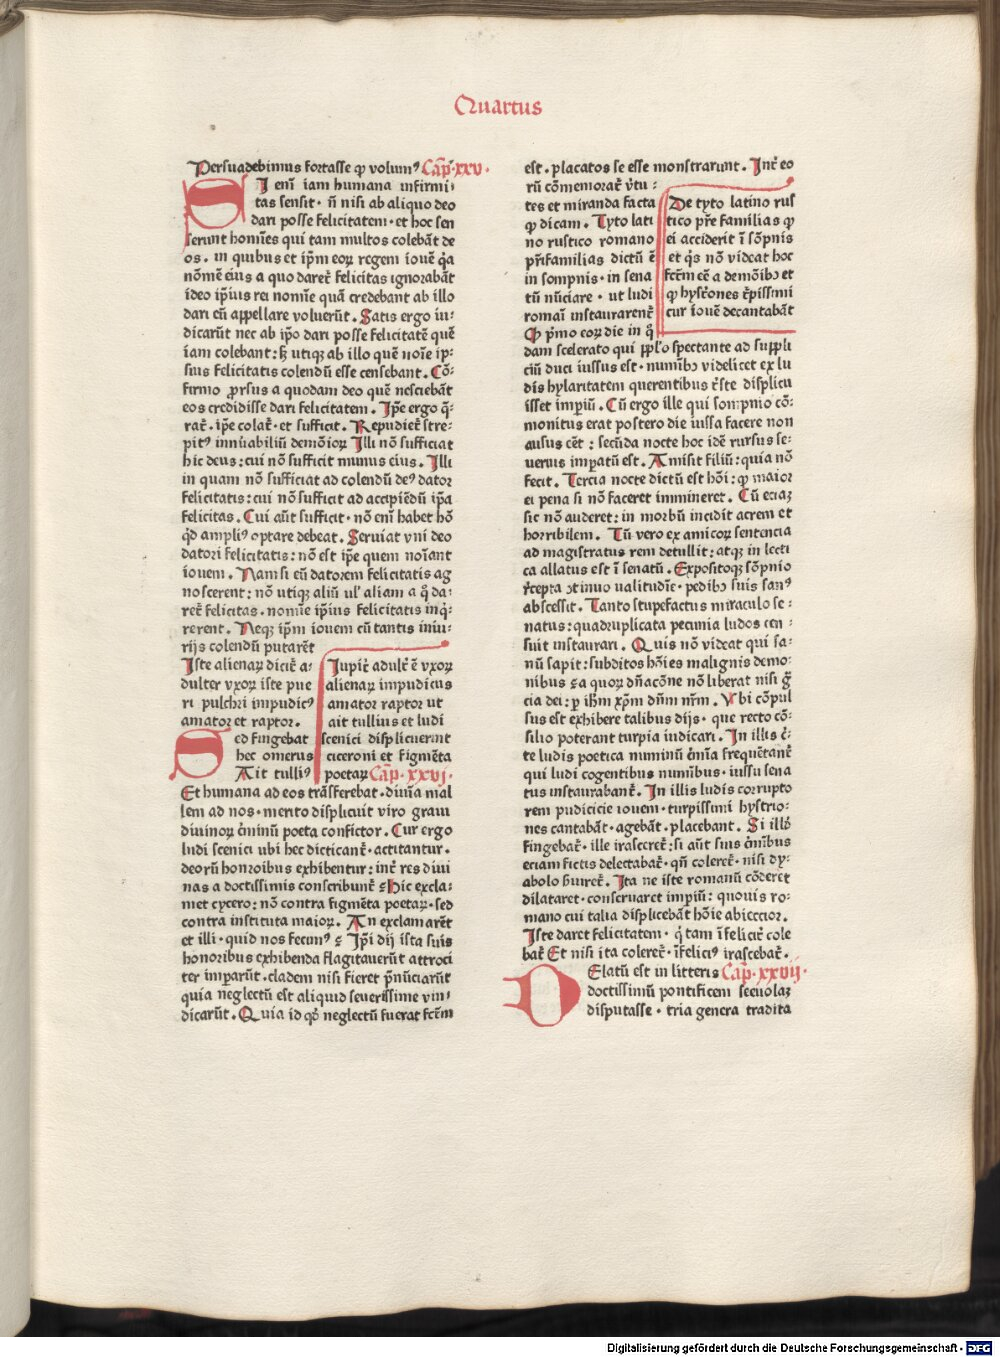 Quartus
Persuadebimus fortasse ꝙ volumꝰ Cap̃·xxv·
SI eni᷒ iam humana infirmi⸗
tas sensit · ñ nisi ab aliquo deo
dari posse felicitatem · et hoc sen
serunt homi᷒es qui tam multos colebãt de
os · in quibus et ip̃m eoꝝ regem iouẽ q̃a
nõmẽ eius a quo dareꝉ felicitas ignorabãt
ideo ip̃ius rei nomi᷒e quã credebant ab illo
dari cũ appellare voluerũt · Satis ergo in⸗
dicarũt nec ab ip̃o dari posse felicitatẽ quẽ
iam colebant : sꝫ utiqꝫ ab illo quẽ noĩe ip⸗
sius felicitatis colendũ esse censebant · Cõ⸗
firmo ꝓrsus a quodam deo quẽ nesciebãt
eos credidisse dari felicitatem · Ip̃e ergo q̃⸗
raꝉ · ip̃e colaꝉ · et sufficit · Repudieꝉ stre⸗
pitꝰ innũabiliũ demõioꝝ Illi nõ sufficiat
hic deus : cui nõ sufficit munus eius · Illi
in quam nõ sufficiat ad colendũ deꝰ dator
felicitatis : cui nõ sufficit ad accipiẽdũ ip̃a
felicitas · Cui aũt sufficit · nõ eni᷒ habet hõ
q̃d ampliꝰ optare debeat · Seruiat vni deo
datori felicitatis : nõ est ip̃e quem noĩant
iouem · Nam si eũ datorem felicitatis ag
noscerent : nõ utiqꝫ aliũ ul' aliam a q̃ da⸗
reꝉ felicitas · nomi᷒e ip̃ius felicitatis inq̃⸗
rerent · Neqꝫ ip̃m iouem cũ tantis iniu⸗
rijs colendũ putarẽt
Iste alienaꝝ diciꝉ a⸗
dulter vxoꝝ iste pue
ri pulchri impudicꝰ
amator et raptor ·
Iupiꝉ adulꝉ ẽ vxoꝝ
alienaꝝ impudicus
amator raptor ut
ait tullius et ludi
scenici displicuerunt
ciceroni et figmẽta
poetaꝝ Cap̃·xxvj·
Sed fingebat
hec omerus
Ait tulliꝰ
Et humana ad eos trãsferebat · diuĩa mal
lem ad nos · merito displicuit viro graui
diuinoꝝ c̃minũ poeta confictor · Cur ergo
ludi scenici ubi hec dicticanꝉ · actitantur ·
deorũ honoribus exhibentur : inꝉ res diui
nas a doctissimis conscribunꝉ ⸮ Hic excla⸗
met cycero : nõ contra figmẽta poetaꝝ · sed
contra instituta maioꝝ · An exclamarẽt
et illi · quid nos fecimꝰ ⸮ Ip̃i dij ista suis
honoribus exhibenda flagitauerũt attroci
ter imꝑarũt · cladem nisi fieret p̃nũciarũt
quia neglectũ est aliquid seuerissime vin⸗
dicarũt · Quia id qꝫ neglectũ fuerat fcẽm
est · placatos se esse monstrarunt · Inꝉ eo
rũ cõmemoraꝉ v̇tu⸗
tes et miranda facta
ꝙ dicam · Tyto lati
no rustico romano
pr̃ifamilias dictũ ẽ
in sompnis · in sena
tũ nũciare · ut ludi
romai᷒ instaurarenꝉ
De tyto latino rus
tico pr̃e familias ꝙ
ei acciderit ĩ sõpnis
et q̃s nõ videat hoc
fcẽm eẽ a demõibꝫ et
ꝙ hysꝉones ꝉpissimi
cur iouẽ decantabãt
Qꝫ p̃mo eoꝝ die in q̃
dam scelerato qui ppl'o spectante ad suppli
ciũ duci iussus est · numi᷒bꝫ videlicet ex lu
dis hylaritatem querentibus ꝉste displicu
isset impiũ · Cũ ergo ille qui sompnio cõ⸗
monitus erat postero die iussa facere non
ausus eẽt : secũda nocte hoc idẽ rursus se⸗
uerius imꝑatũ est · Amisit filiũ : quia nõ
fecit · Tercia nocte dictũ est hõi : ꝙ maior
ei pena si nõ faceret immineret · Cũ eciaꝫ
sic nõ auderet : in morbũ incidit acrem et
horribilem · Tũ vero ex amicoꝝ sentencia
ad magistratus rem detullit : atqꝫ in lecti
ca allatus est ĩ senatũ · Expositoqꝫ sõpnio
r̃cepta ↄtinuo ualitudi᷒e · pedibꝫ suis sanꝰ
abscessit · Tanto stupefactus miraculo se⸗
natus : quadruplicata pecunia ludos cen⸗
suit instaurari · Quis nõ videat qui sa⸗
nũ sapit : subditos hõies malignis demo⸗
nibus ⸮ a quoꝝ dñacõne nõ liberat nisi gr̃
cia dei : ꝑ ih̃m xp̃m dñm nr̃m · Vbi cõpul
sus est exhibere talibus dijs · que recto cõ⸗
silio poterant turpia iudicari · In illis c̃⸗
te ludis poetica numinũ c̃mĩa frequẽtanꝉ
qui ludi cogentibus numi᷒ibus · iussu sena
tus instaurabanꝉ · In illis ludis corrupto
rem pudicicie iouem · turpissimi hystrio⸗
nes cantabãt · agebãt · placebant · Si illõ
fingebaꝉ · ille irasceretꝉ : si aũt suis c̃mi᷒bus
eciam fictis delectabaꝉ · qñ colereꝉ · nisi dy⸗
abolo s̃uireꝉ · Ita ne iste romanũ cõderet
dilataret · conseruaret impiũ : quouis ro⸗
mano cui talia displicebãt hõie abiectior ·
Iste daret felicitatem · q̃ tam ĩfeliciꝉ cole
baꝉ Et nisi ita colereꝉ · ĩfeliciꝰ irascebaꝉ ·
RElatũ est in litteris Cap̃·xxvij·
doctissimũ pontificem sceuolaꝫ
disputasse · tria genera tradita
Digitalisierung gefördert durch die Deutsche Forschungsgemeinschaft - DFG